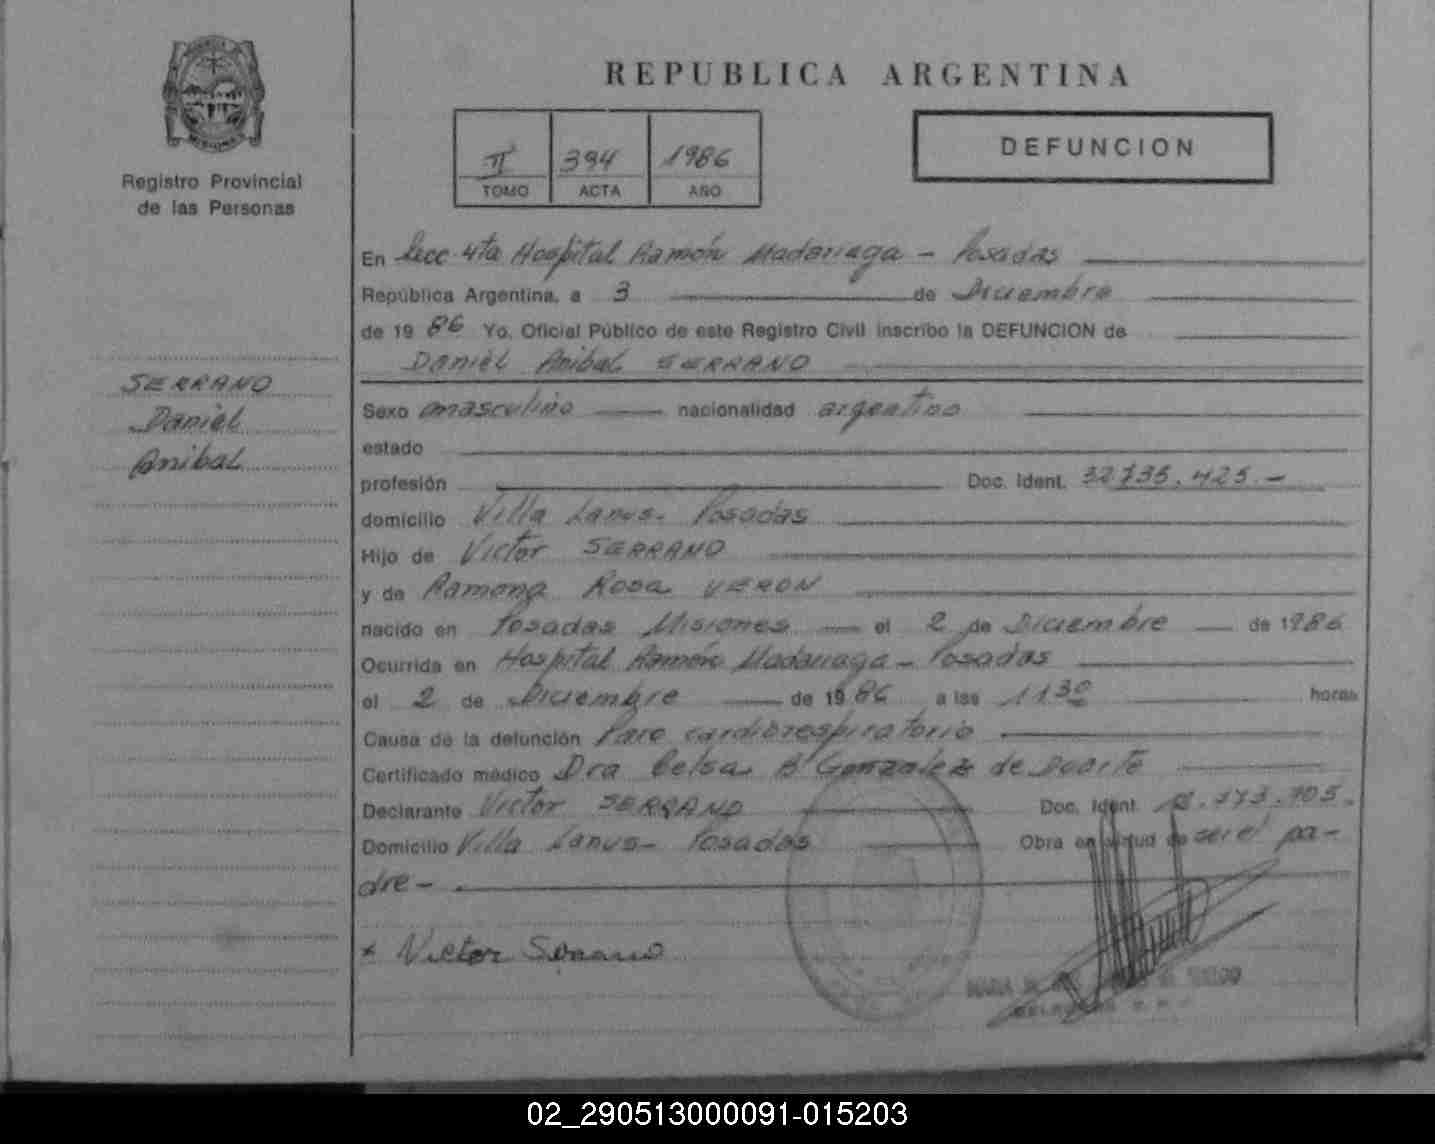 REPUBLICA ARGENTINA
MISIONES
Registro Provincial
de las Personas
II 394 1986
TOMO ACTA AÑO
DEFUNCION
SERRANO
Daniel
Anibal
En Secc 4ta Hospital Ramón Madariaga - Posadas
República Argentina, a 3 de Diciembre
de 19 86 Yo, Oficial Público de este Registro Civil inscribo la DEFUNCION de
Daniel Anibal SERRANO
Sexo masculino nacionalidad argentino
estado
profesión Doc. Ident. 32735.425.-
domicilio Villa Lanus- Posadas
Hijo de Victor SERRANO
y de Ramona Rosa VERON
nacido en Posadas Misiones el 2 de Diciembre de 1986
Ocurrida en Hospital Ramón Madariaga - Posadas
el 2 de Diciembre de 19 86 a las 11 30 horas
Causa de la defunción Paro cardiorespiratorio
Certificado médico Dra Celsa B Gonzalez de Duarte
Declarante Victor SERRANO Doc. Ident.
Domicilio Villa Lanus- Posadas Obra en virtud de ser el pa-
dre -
x Victor Serrano
02_290513000091-015203